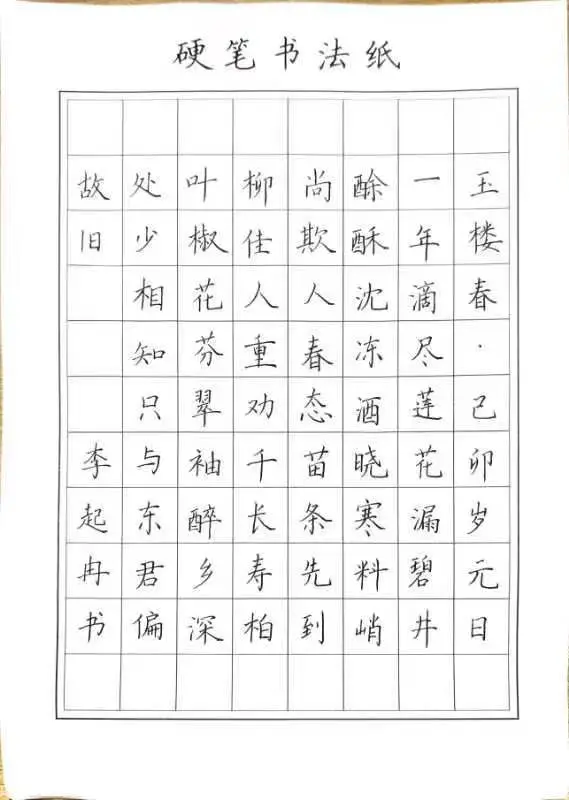 硬笔书法纸
玉楼春·己卯岁元日
一年滴尽莲花漏碧井
酴酥沈冻酒晓寒料峭
尚欺人春态苗条先到
柳佳人重劝千长寿柏
叶椒花芬翠袖醉乡深
处少相知只与东君偏
故旧 李起冉书